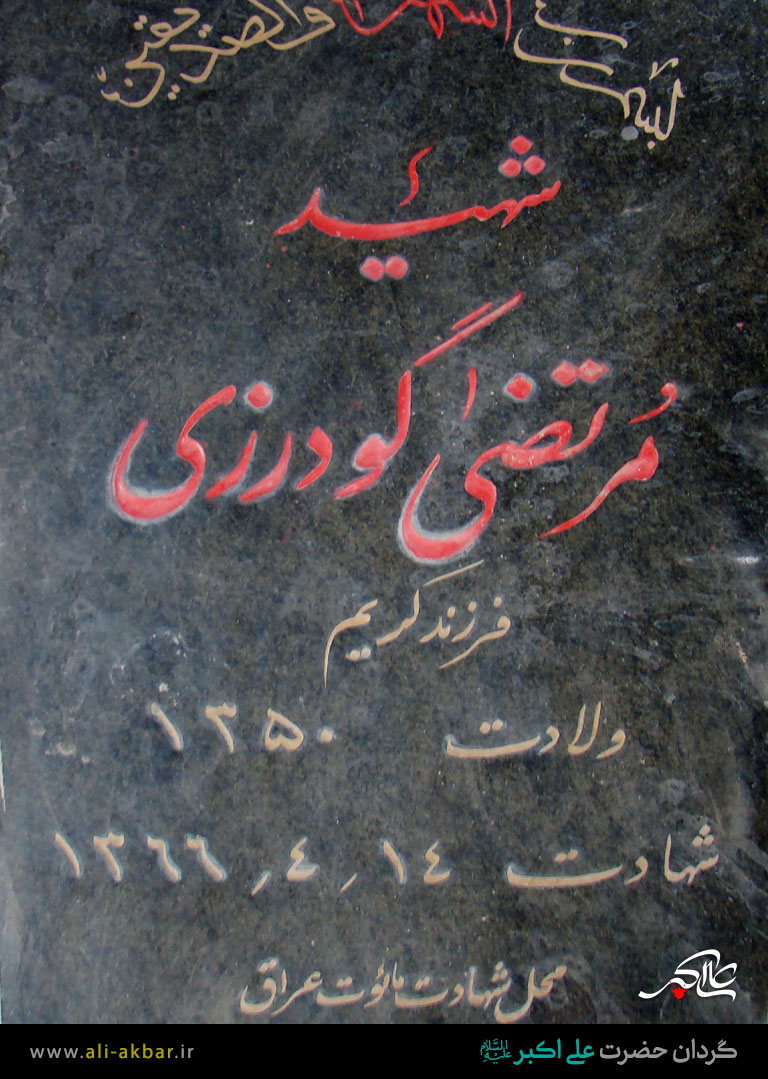 بسم رب الشهداء والصدیقین
شهید
مُرتضیٰ گودرزی
فرزند کریم
ولادت ۱۳۵۰
شهادت ۱۴ / ۴ / ۱۳۶۶
محل شهادت مائوت عراق
علی اکبر
گردان حضرت علی اکبر علیه السلام
www.ali-akbar.ir